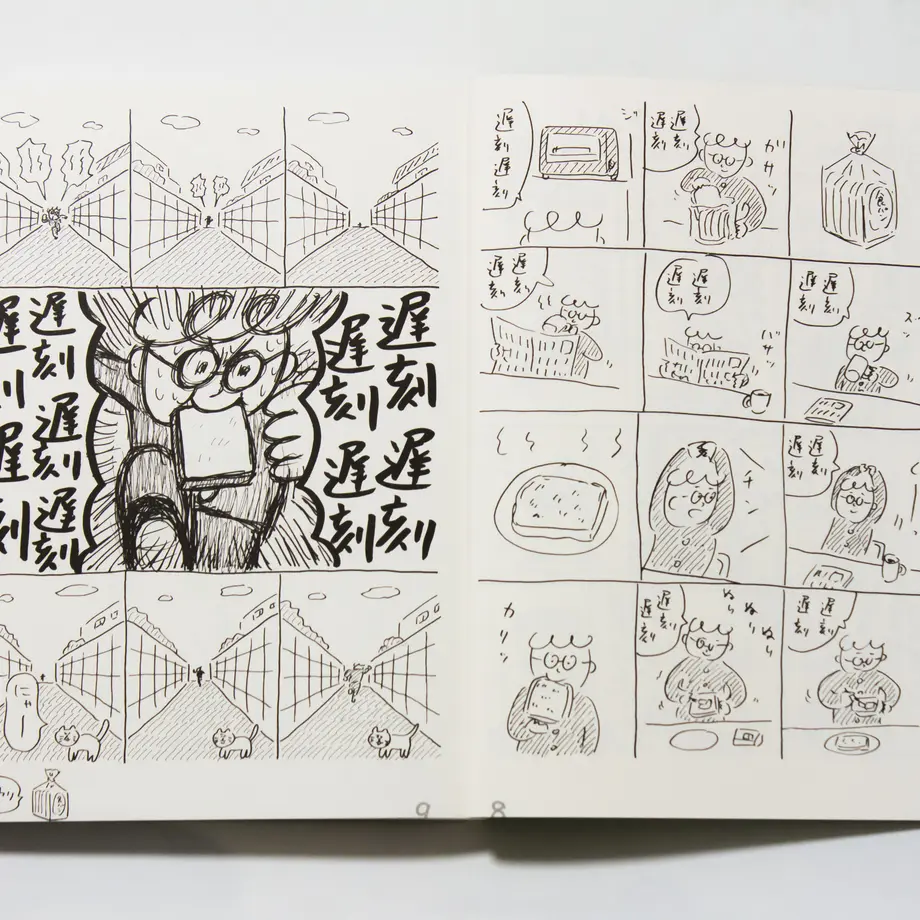 食パン
ガサッ
遅刻
遅刻
ジ
遅刻遅刻
遅刻
遅刻
バサッ
遅刻
遅刻
遅刻
遅刻
遅刻
遅刻
チン
遅刻
遅刻
ぬり
ぬり
ぬり
遅刻
遅刻
カリッ
8
遅刻遅刻
遅刻遅刻
遅刻遅刻
遅刻遅刻
にゃー
9